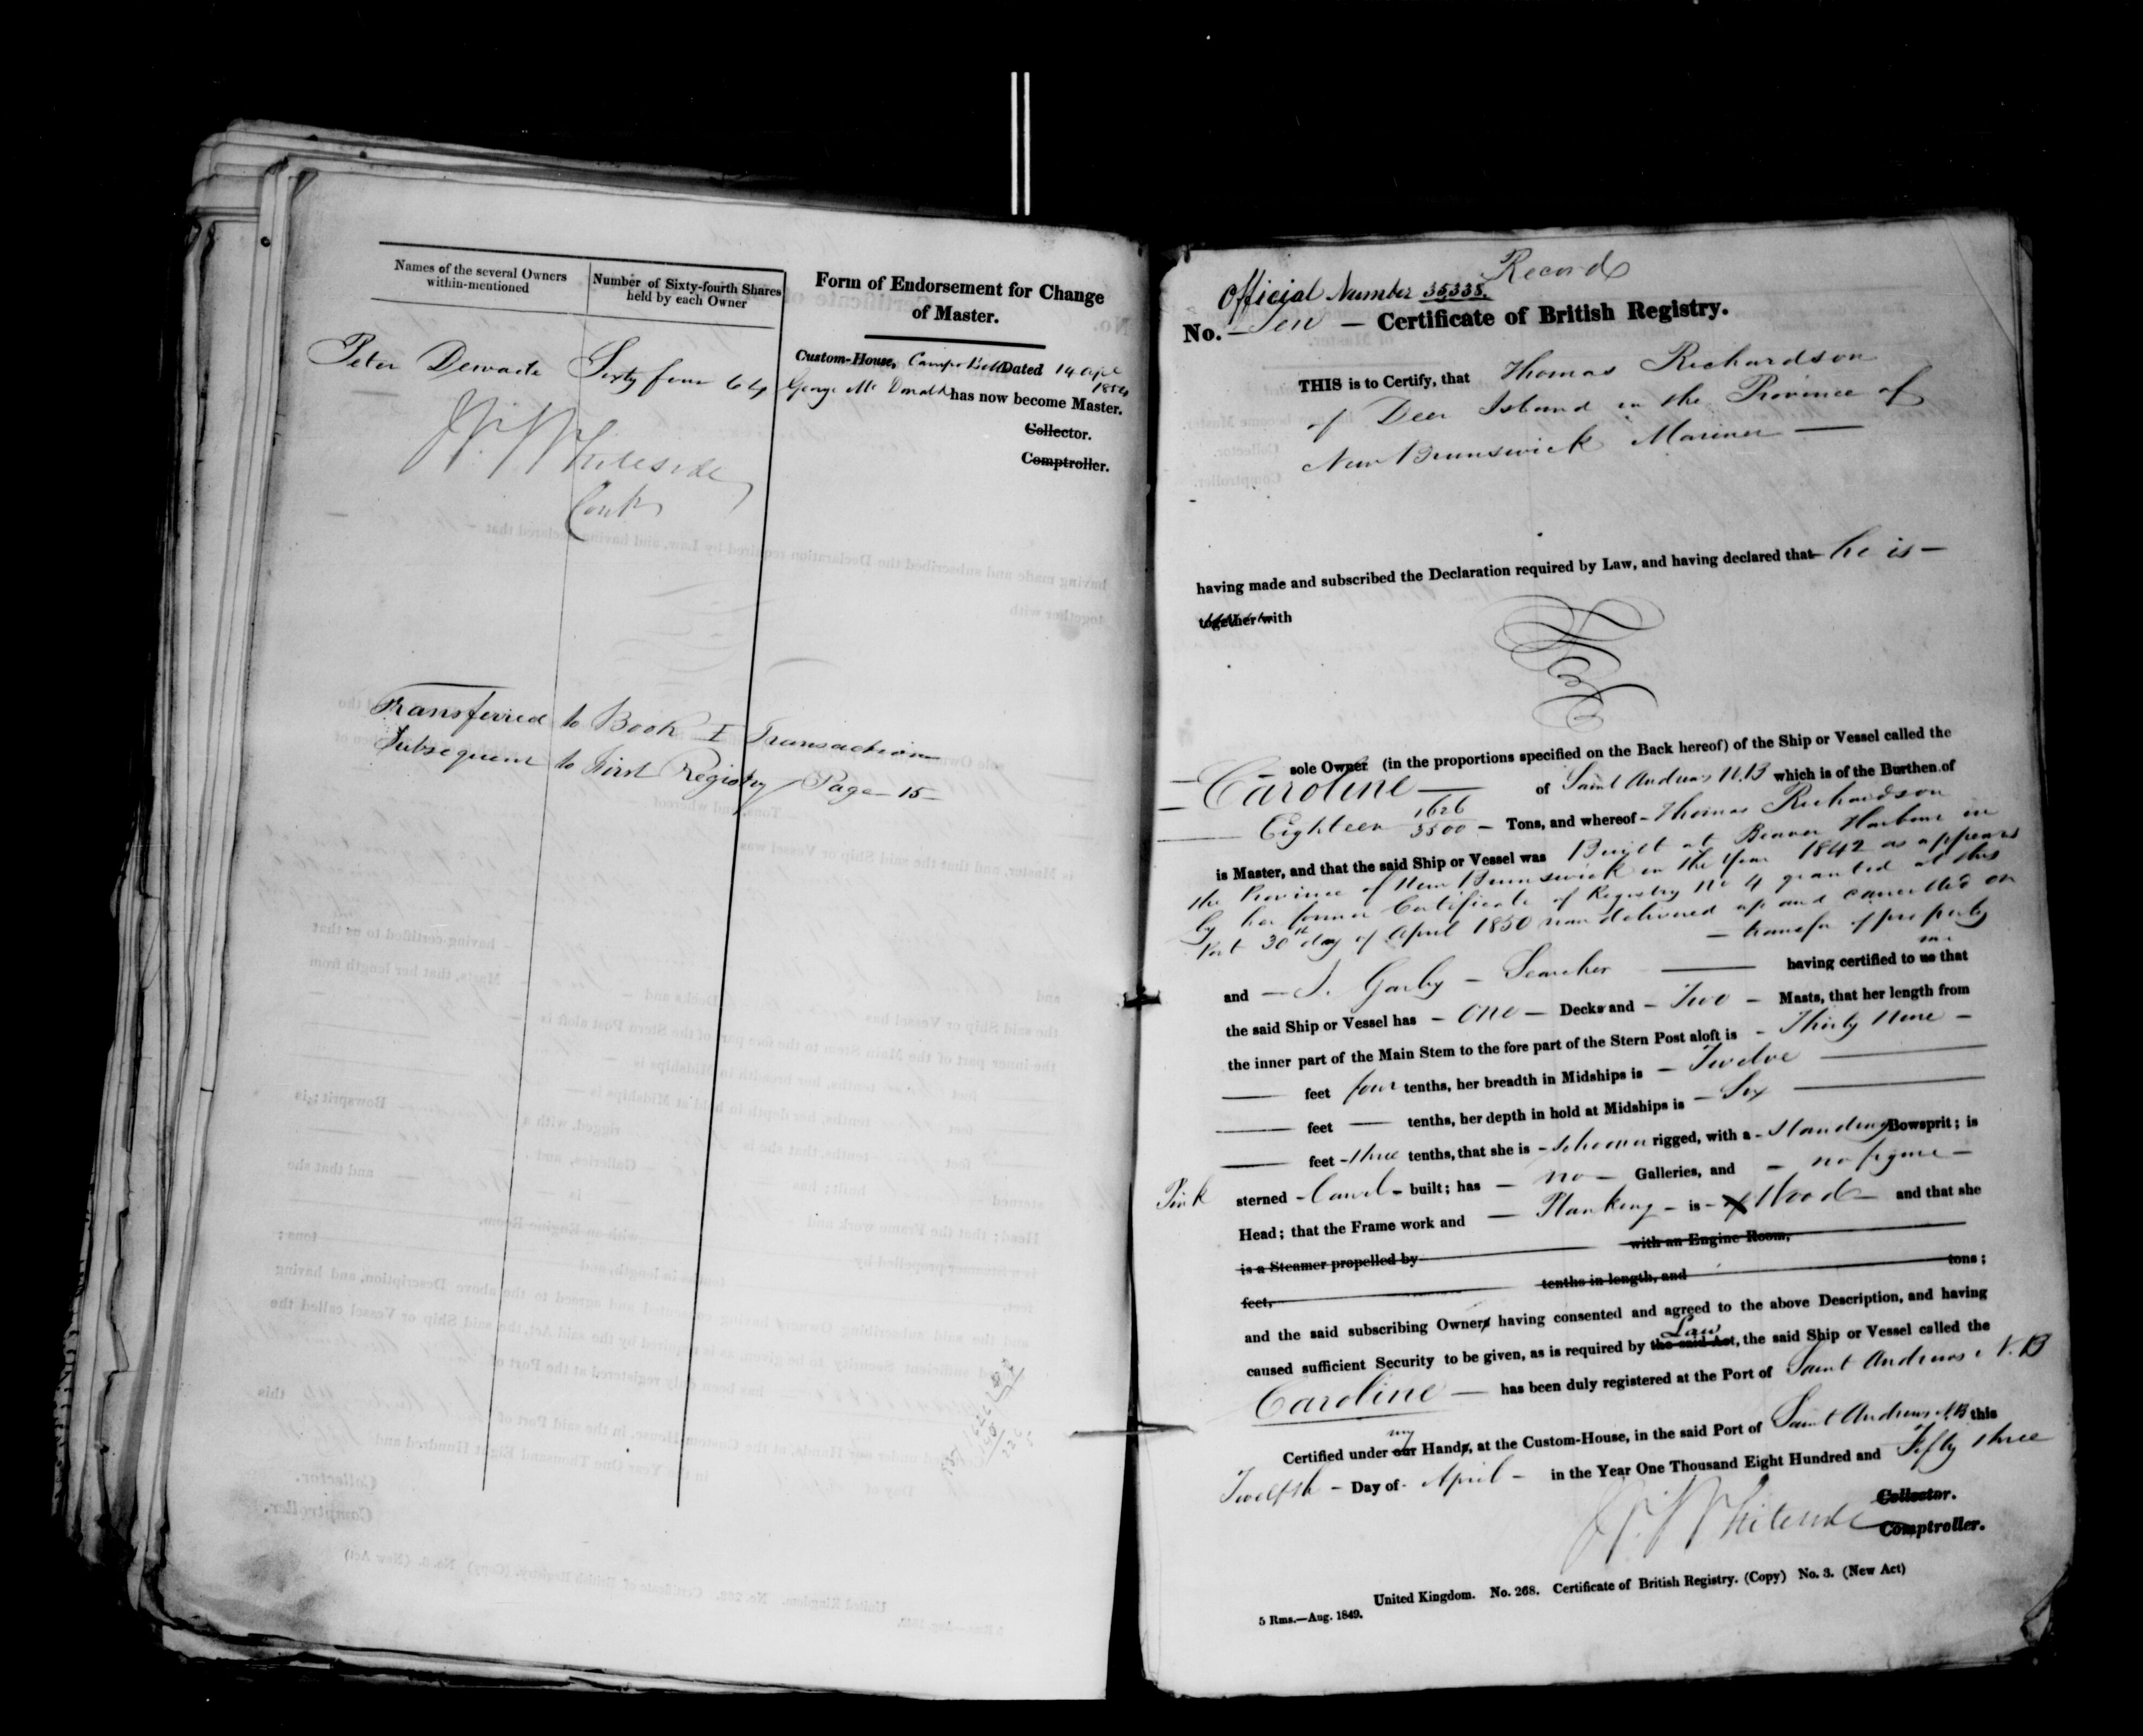 Names of the several Owners
within-mentioned
Number of Sixty-fourth Shares
held by each Owner
Peter Dewarte Sixty four 64
J. W. Whiteside
Contr
Transferred to Book I Transactions
Subsequent to First Registry Page 15
Form of Endorsement for Change
of Master.
Custom-House, Campo Bello Dated 14 Apl
1854
George Mc Donald has now become Master.
Collector.
Comptroller.
Record
Official Number 35,338.
No. – Ten – Certificate of British Registry.
THIS is to Certify, that Thomas Richardson
of Deer Island in the Province of
New Brunswick Mariner
having made and subscribed the Declaration required by Law, and having declared that – he is –
together with
sole Owner (in the proportions specified on the Back hereof) of the Ship or Vessel called the
Caroline of Saint Andrews N.B which is of the Burthen of
Eighteen 1626/3500 – Tons, and whereof – Thomas Richardson
is Master, and that the said Ship or Vessel was Built at Beaver Harbour in
the Province of New Brunswick in the Year 1842 as appears
by her former Certificate of Registry No 4 granted at this
Port 30th day of April 1850 now delivered up and cancelled on
– transfer of property
me
and – J. Garby – Searcher having certified to us that
the said Ship or Vessel has – One – Decks and – Two – Masts, that her length from
the inner part of the Main Stem to the fore part of the Stern Post aloft is – Thirty Nine –
feet four tenths, her breadth in Midships is – Twelve
feet — tenths, her depth in hold at Midships is – Six
feet – three tenths, that she is – Schooner rigged, with a – Standing Bowsprit; is
Pink sterned – Carvel – built; has – no – Galleries, and – no figure –
Head; that the Frame work and – Planking – is – of Wood – and that she
is a Steamer propelled by with an Engine Room,
feet, tenths in length, and tons;
and the said subscribing Owners having consented and agreed to the above Description, and having
Law
caused sufficient Security to be given, as is required by the said Act, the said Ship or Vessel called the
Caroline – has been duly registered at the Port of Saint Andrews N.B
my
Certified under our Hands, at the Custom-House, in the said Port of Saint Andrews N.B this
Twelfth – Day of – April – in the Year One Thousand Eight Hundred and Fifty three
Collector.
J. W. Whiteside Comptroller.
United Kingdom. No. 268. Certificate of British Registry. (Copy) No. 3. (New Act)
5 Rms.—Aug. 1849.